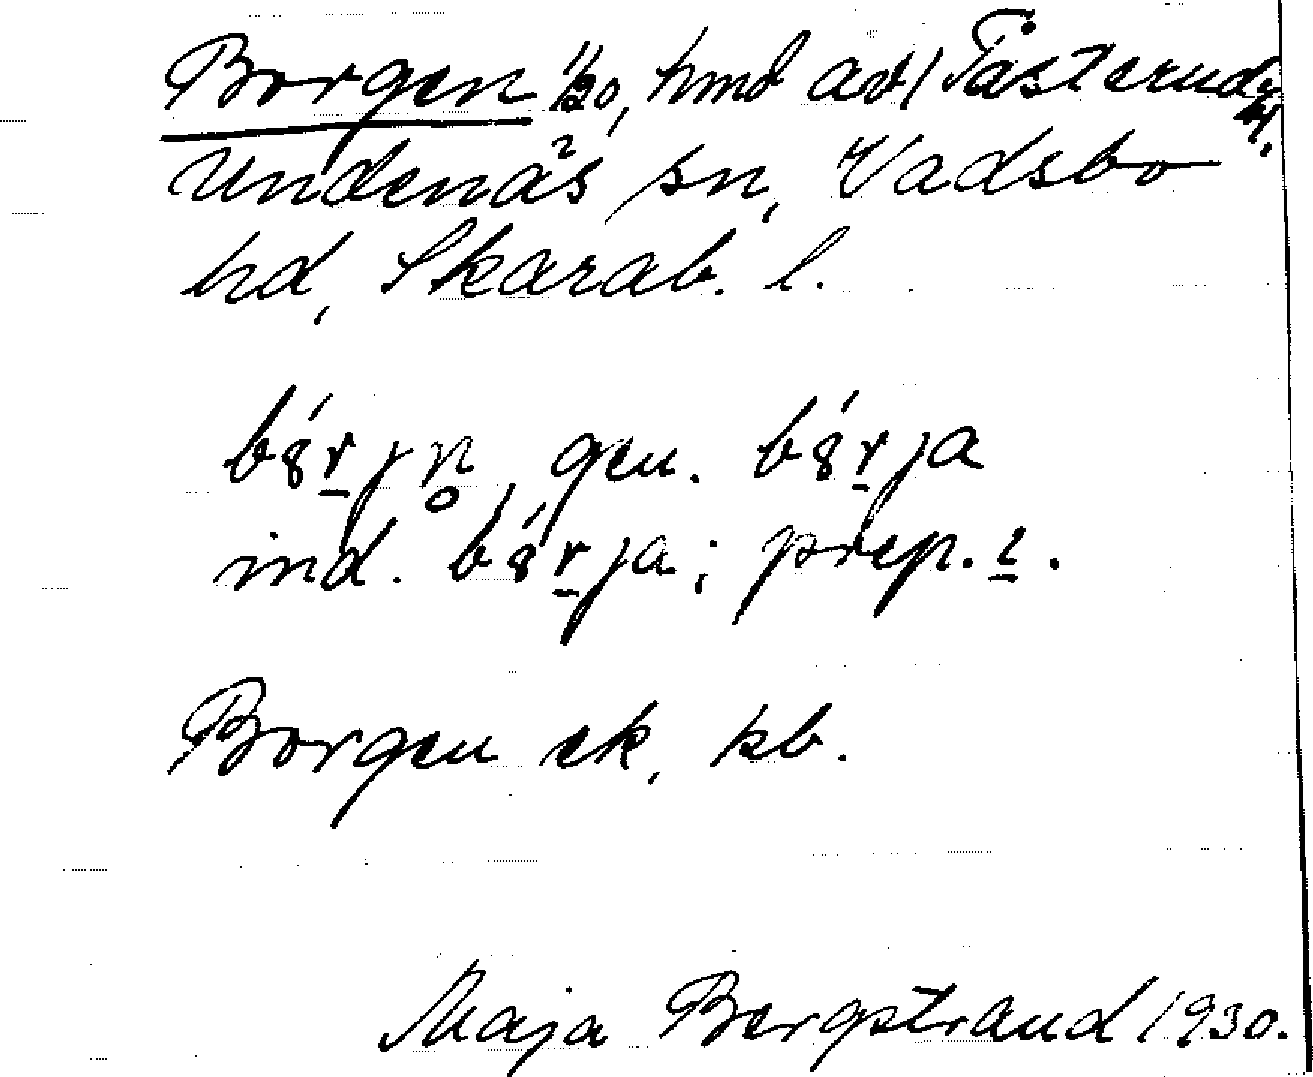 Borgen 1/20, hmd avl Fästerud
Undenäs sn, Vadsbo
hd, Skarab. l.
gen.
ind. prep. ı.
Borgen ek, kb.
Maja Bergstrand 1930.